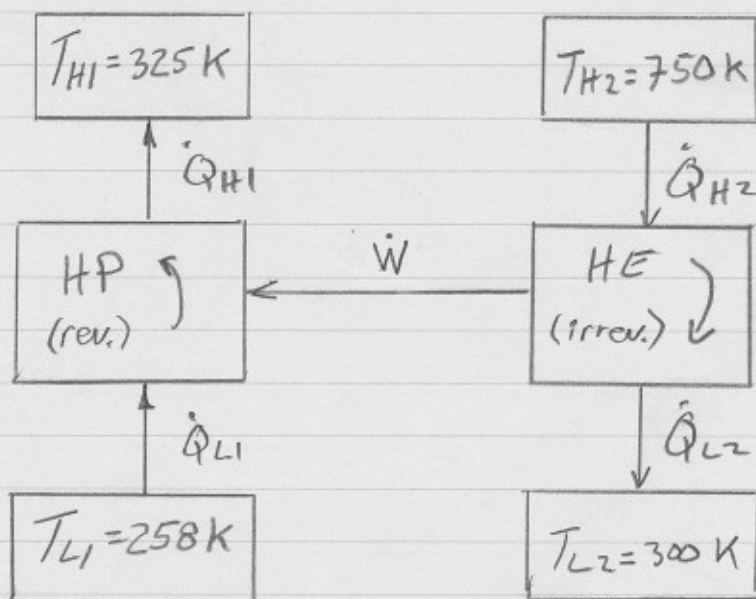 T_H1 = 325 K
T_H2 = 750 K
Q̇_H1
Q̇_H2
HP
(rev.)
Ẇ
HE
(irrev.)
Q̇_L1
Q̇_L2
T_L1 = 258 K
T_L2 = 300 K